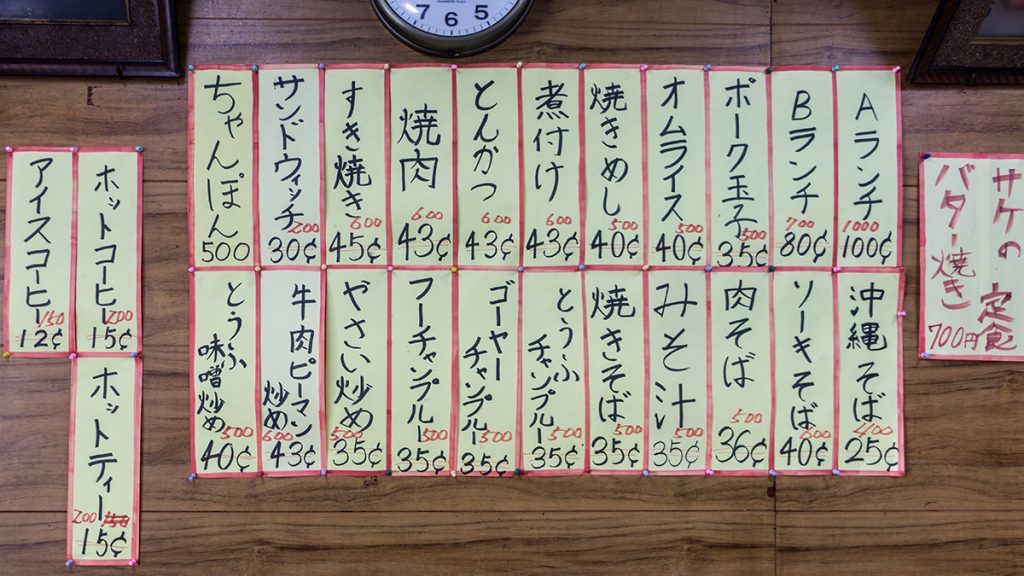 7 6 5
Aランチ
1000
100¢
Bランチ
700
80¢
ポーク玉子
500
35¢
オムライス
500
40¢
焼きめし
500
40¢
煮付け
600
43¢
とんかつ
600
43¢
焼肉
600
43¢
すき焼き
600
45¢
サンドウィッチ
200
30¢
ちゃんぽん
500
沖縄そば
400
25¢
ソーキそば
600
40¢
肉そば
500
36¢
みそ汁
500
35¢
焼きそば
500
35¢
とうふ
チャンプルー
500
35¢
ゴーヤー
チャンプルー
500
35¢
フーチャンプルー
500
35¢
やさい炒め
500
35¢
牛肉ピーマン
炒め
600
43¢
とうふ
味噌炒め
500
40¢
サケの定食
バター焼き
700円
ホットコーヒー
200
15¢
アイスコーヒー
150
12¢
ホットティー
200 150
15¢